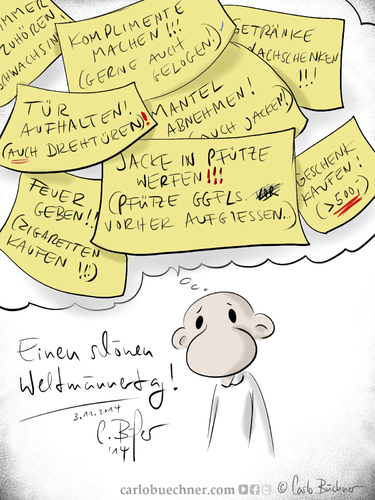 IMMER
ZUHÖREN!
KOMPLIMENTE
MACHEN!!!
(GERNE AUCH
GELOGEN!)
GETRÄNKE
NACHSCHENKEN
!!!
TÜR
AUFHALTEN!
(AUCH DREHTÜREN)!
MANTEL
ABNEHMEN!
(AUCH JACKEN!)
JACKE IN PFÜTZE
WERFEN!!!
(PFÜTZE GGFLS.
VORHER AUFGIESSEN..)
GESCHENK
KAUFEN!
(>500,)
FEUER
GEBEN!!
(ZIGARETTEN
KAUFEN!!!)
Einen schönen
Weltmännertag!
3.11.2014
'14
carlobuechner.com
© Carlo Büchner